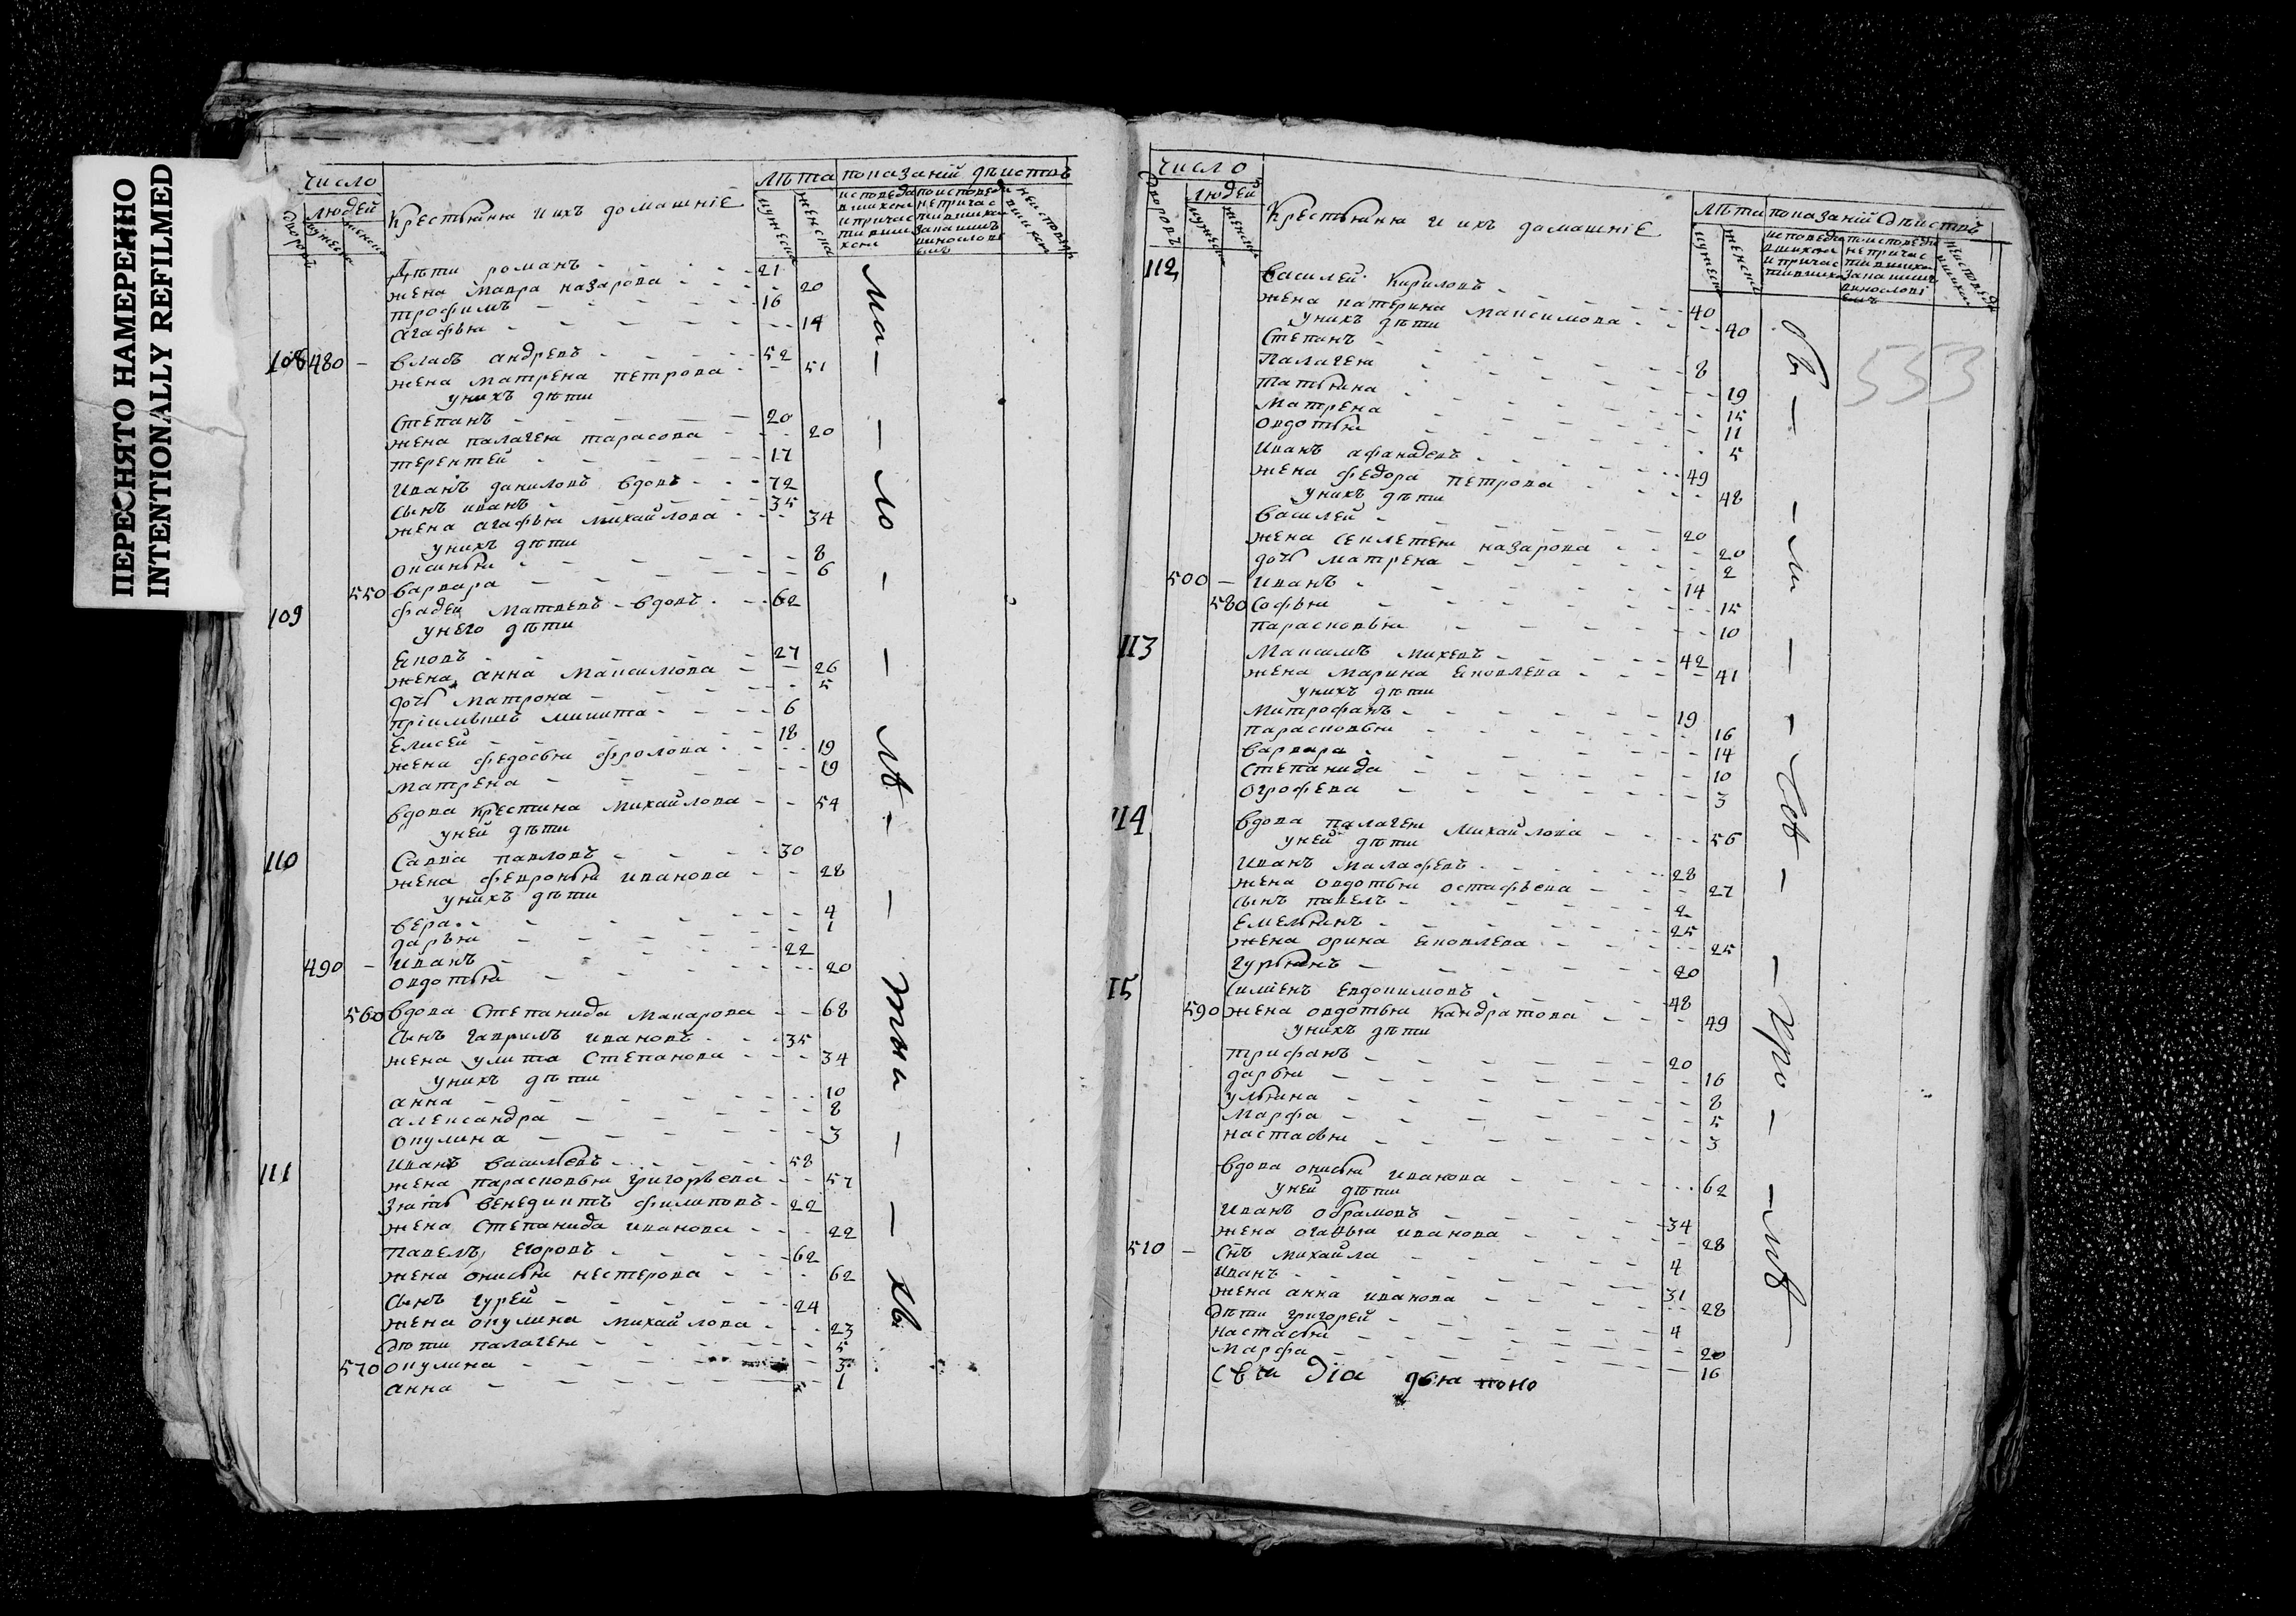 ПЕРЕСНЯТО НАМЕРЕННО
INTENTIONALLY REFILMED
число
людей
Крестьяня и ихъ домашнiе
лѣта
показанiй дѣиствъ
дѣти романъ 21
жена мавра назарова 20
трофимъ 16
агафья 14
108 480 власъ андревъ 52
жена матрена петрова 51
унихъ дѣти
степанъ 20
жена палагея тарасова 20
терентей 17
иванъ даниловъ вдовъ 72
сынъ иванъ 35
жена агафья михайлова 34
унихъ дѣти
оксинья 8
550 варвара 6
109 фадей матвевъ вдовъ 62
унего дѣти
яковъ 27
жена анна максимова 26
дочь матрона 5
прiимышъ микита 6
елисей 18
жена федосья фролова 19
матрена 19
вдова крестина михайлова 54
уней дѣти
110 савва павловъ 30
жена февронья иванова 28
унихъ дѣти
вера 4
дарья 1
490 иванъ 22
овдотья 20
560 вдова степанида макарова 68
сынъ гаврилъ ивановъ 35
жена улита степанова 34
унихъ дѣти
анна 10
александра 8
окулина 3
111 иванъ васильевъ 58
жена парасковья григорьева 57
зять венедиктъ филиповъ 22
жена степанида иванова 22
павелъ егоровъ 62
жена онисья нестерова 62
сынъ гурей 24
жена окулина михайлова 23
дѣти палагея 5
570 окулина 3
анна 1
число
людей
Крестьяня и ихъ дамашнiе
лѣта
показанiй дѣиствъ
553
112 василей кириловъ 40
жена катерина максимова 40
унихъ дѣти
степанъ 8
палагея 19
татьяна 15
матрена 11
овдотья 5
иванъ афанасевъ 49
жена федора петрова 48
унихъ дѣти
василей 20
жена секлетея назарова 20
дочь матрена 2
500 иванъ 14
580 софья 15
парасковья 10
113 максимъ михевъ 42
жена марина яковлева 41
унихъ дѣти
митрофанъ 19
парасковья 16
варвара 14
степанида 10
огрофена 3
114 вдова палагея михайлова 56
уней дѣти
иванъ малафевъ 28
жена овдотья остафьева 27
сынъ павелъ 2
емельянъ 25
жена орина яковлева 25
гурьянъ 20
115 симiенъ евдокимовъ 48
590 жена овдотья кандратова 49
унихъ дѣти
трифанъ 20
дарья 16
ульяна 8
марфа 5
настасья 3
вдова онисья иванова 62
уней дѣти
иванъ обрамовъ 34
жена огафья иванова 28
510 снъ михайла 4
иванъ 31
жена анна иванова 28
дѣти григорей 4
настасья 20
марфа 16